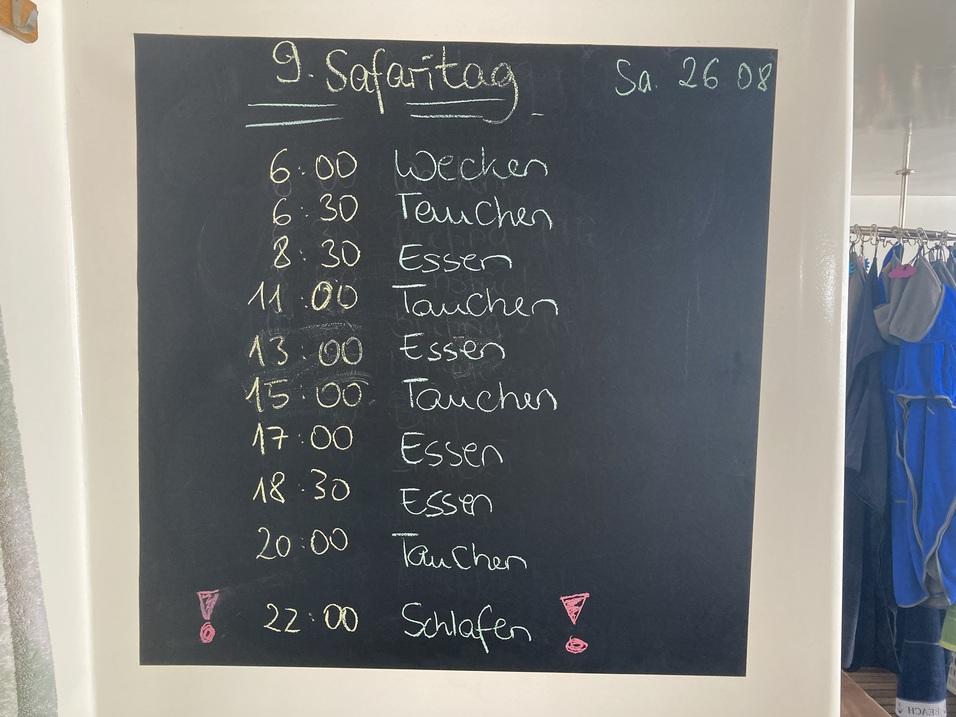 9. Safaritag
Sa. 26 08
6:00 Wecken
6:30 Tauchen
8:30 Essen
11:00 Tauchen
13:00 Essen
15:00 Tauchen
17:00 Essen
18:30 Essen
20:00 Tauchen
! 22:00 Schlafen !
BEACH